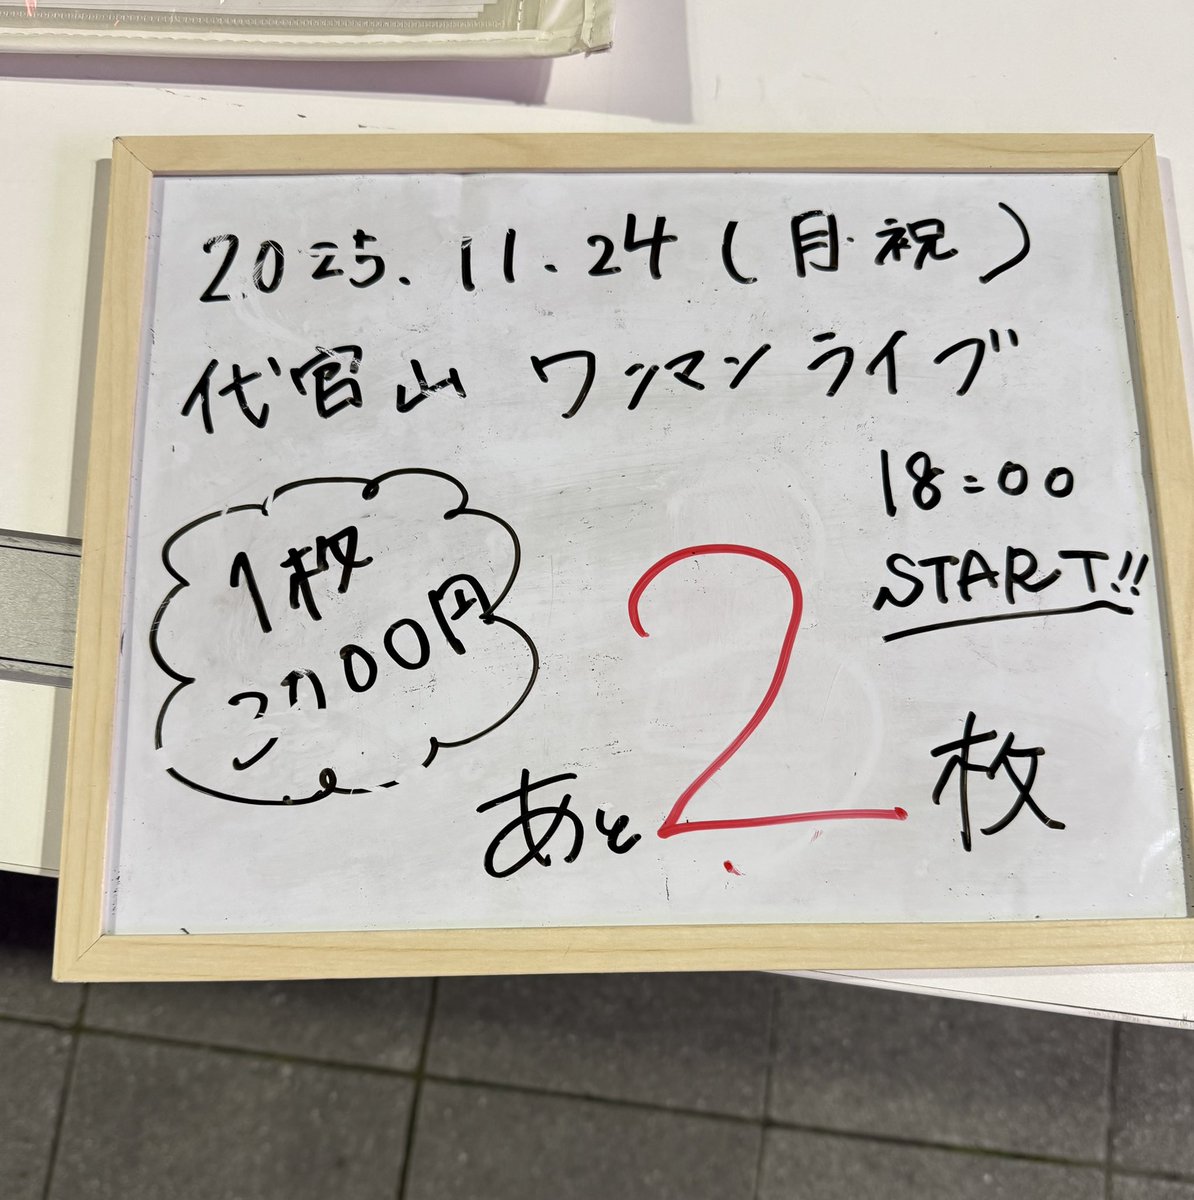 2025.11.24(月・祝)
代官山 ワンマンライブ
18:00
START!!
1枚
00円
あと2枚